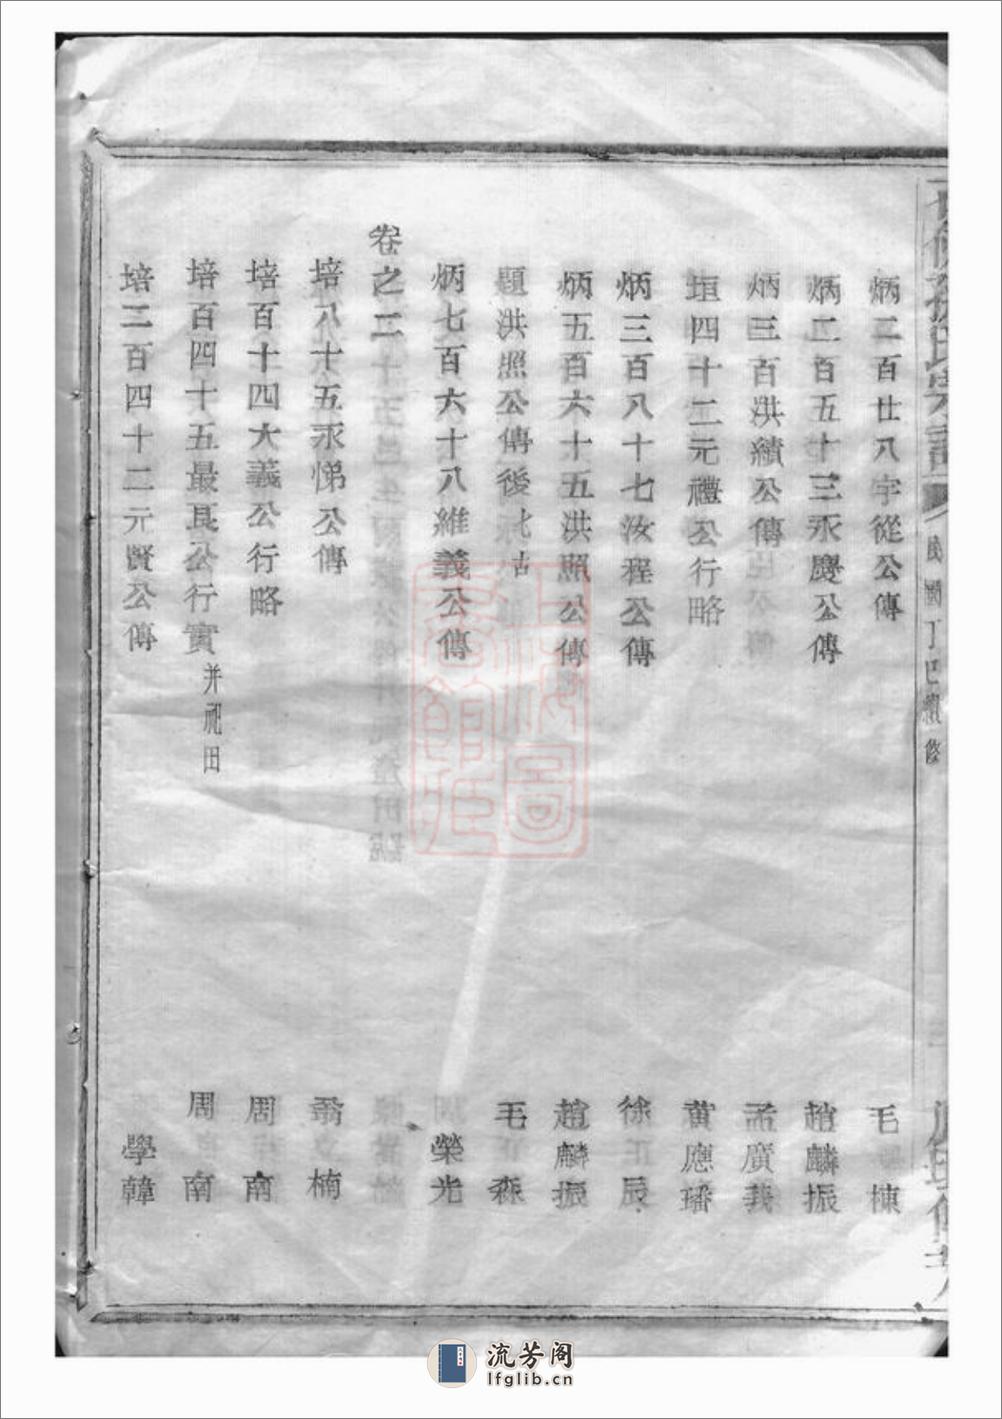 炳二百廿八字從公傳 毛棟
炳二百五十三永慶公傳 趙麟振
炳三百洪績公傳 孟廣義
垣四十二元禮公行略 黄應璠
炳三百八十七汝程公傳 徐正辰
炳五百六十五洪照公傳 趙麟振
題洪照公傳後七古 毛正森
炳七百六十八維義公傳 榮光
卷之二
培八十五永悌公傳 翁楠
培百十四大義公行略 周南
培百四十五最長公行實并祀田 周南
培二百四十二元賢公傳 學韓
民國丁巳續修
上海圖書館藏
流芳阁
lfglib.cn